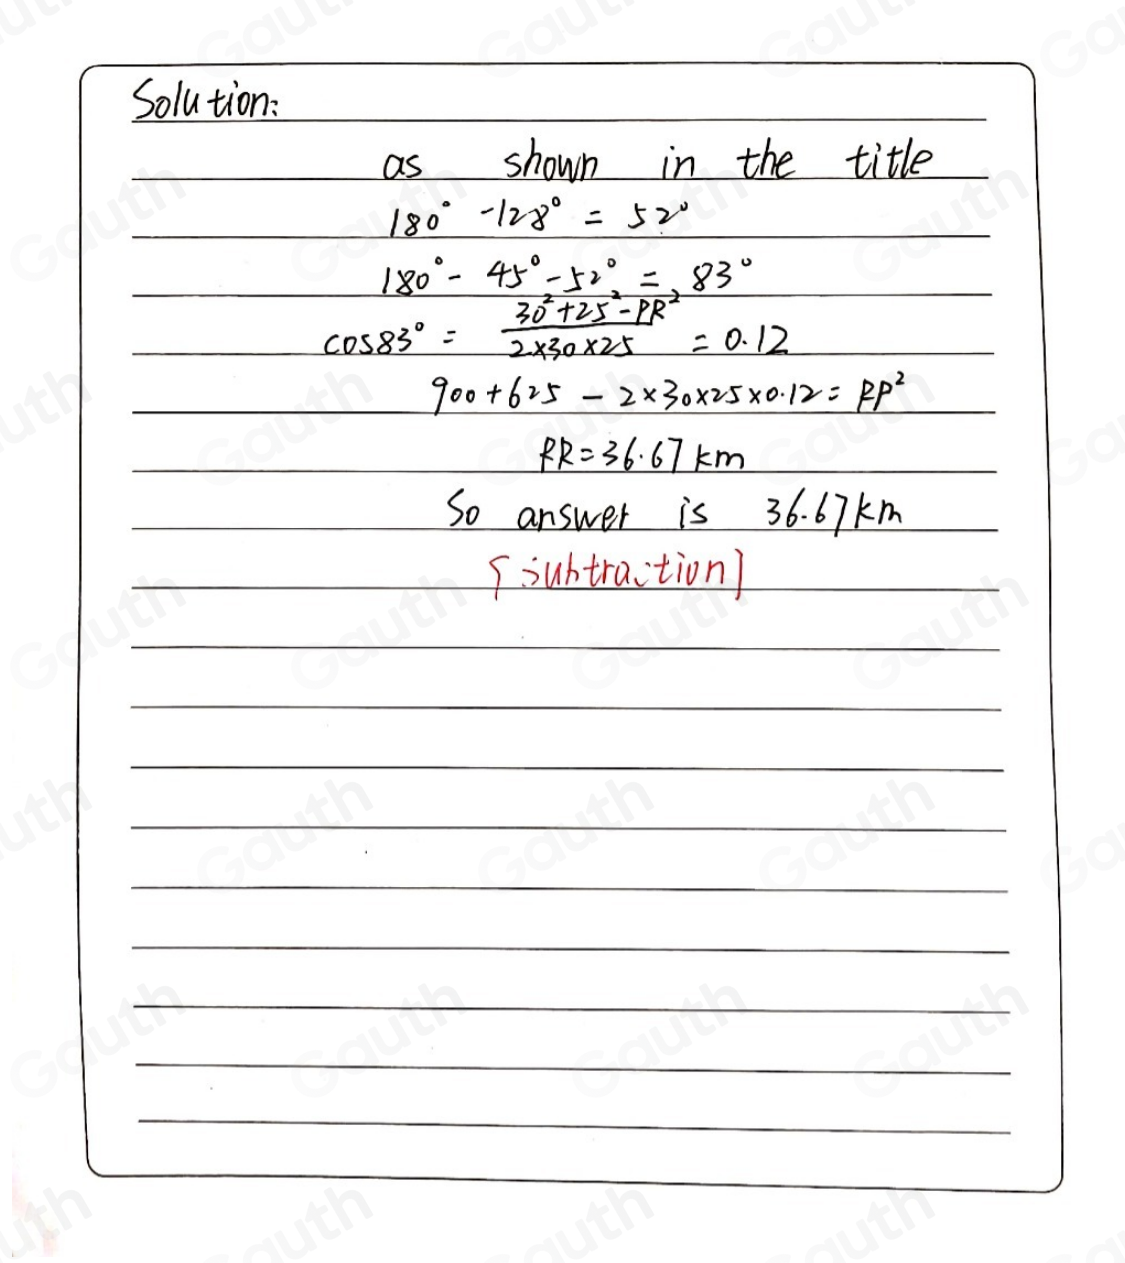 Solution:
as shown in the title
180° -128° = 52°
180° - 45° - 52° = 83°
cos83° = \frac{30²+25²-PR²}{2×30×25} = 0.12
900+625 - 2×30×25×0.12 = RP²
PR=36.67km
So answer is 36.67km
[subtraction]